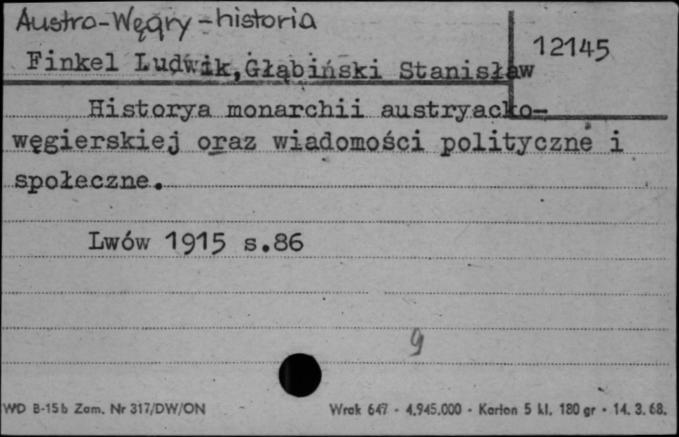 Austro-Węgry-historia
12145
Finkel Ludwik, Głąbiński Stanisław
Historya monarchii austryacko-
węgierskiej oraz wiadomości polityczne i
społeczne.
Lwów 1915 s.86
9
WD B-15b Zam. Nr 317/DW/ON
Wrak 647 - 4.945.000 - Karton 5 kl. 180 gr - 14. 3. 68.